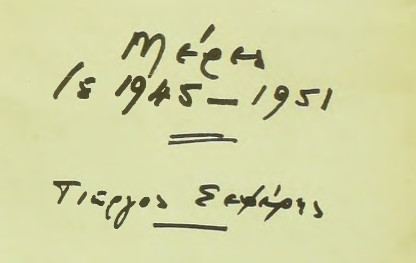 Μέρες
Ιε 1945 – 1951
Γιώργος Σεφέρης